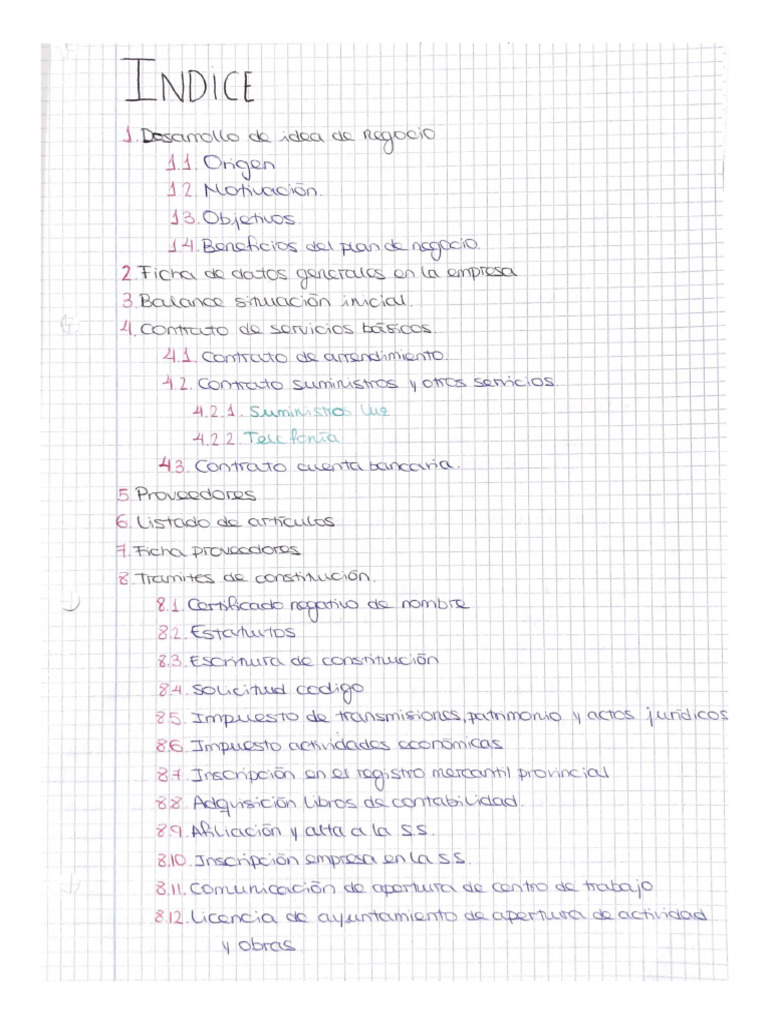 INDICE
1. Desarrollo de idea de negocio
1.1. Origen
1.2. Motivación.
1.3. Objetivos.
1.4. Beneficios del plan de negocio.
2. Ficha de datos generales en la empresa
3. Balance situación inicial.
4. Contrato de servicios básicos.
4.1. Contrato de arrendimiento.
4.2. Contrato suministros y otros servicios
4.2.1. Suministros luz
4.2.2. Telefonía
4.3. Contrato cuenta bancaria.
5. Proveedores
6. Listado de artículos
7. Ficha proveedores
8. Tramites de constitución.
8.1. Certificado negativo de nombre
8.2. Estatutos
8.3. Escritura de constitución
8.4. Solicitud codigo
8.5. Impuesto de transmisiones, patrimonio y actos jurídicos
8.6. Impuesto actividades económicas
8.7. Inscripción en el registro mercantil provincial
8.8. Adquisición libros de contabilidad.
8.9. Afiliación y alta a la S.S.
8.10. Inscripción empresa en la S.S.
8.11. Comunicación de apertura de centro de trabajo
8.12. Licencia de ayuntamiento de apertura de actividad
y obras.